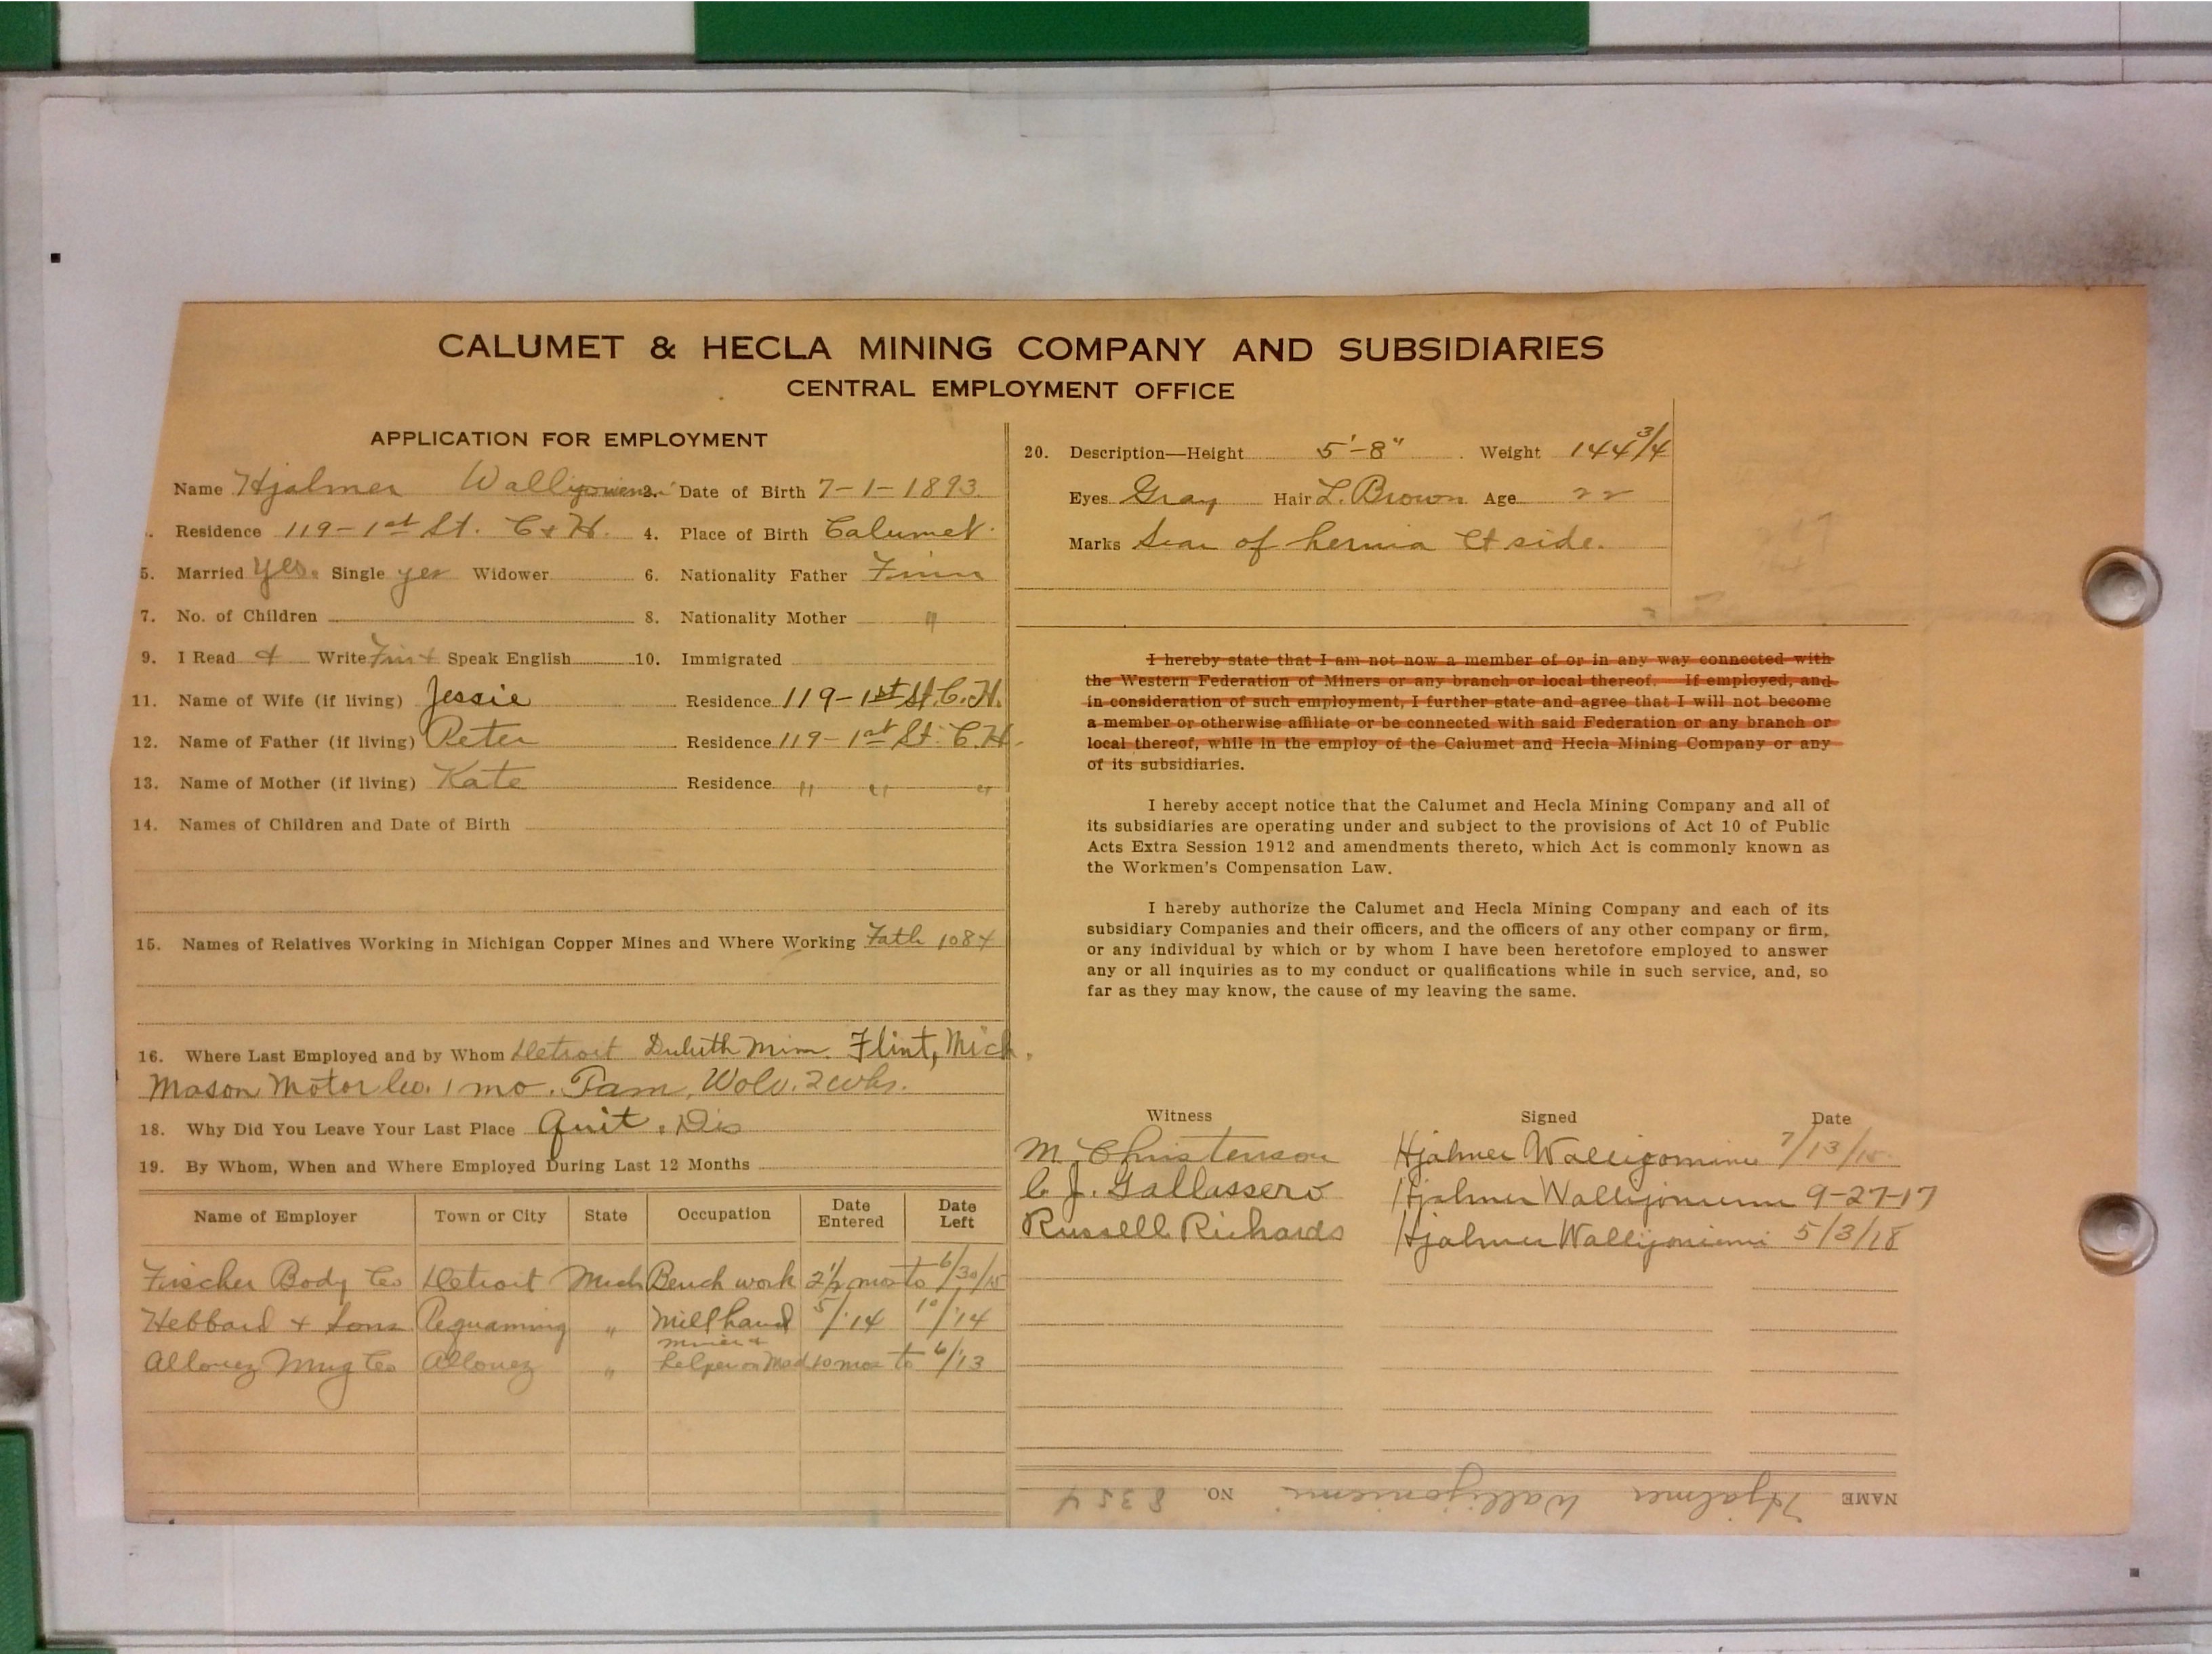 CALUMET & HECLA MINING COMPANY AND SUBSIDIARIES
CENTRAL EMPLOYMENT OFFICE
APPLICATION FOR EMPLOYMENT
Name Hjalmer Wallijoniemi 2. Date of Birth 7-1-1893.
Residence 119-1st St. C & H. 4. Place of Birth Calumet.
5. Married Yes. Single yes Widower 6. Nationality Father Finn
7. No. of Children 8. Nationality Mother "
9. I Read & Write Finn & Speak English 10. Immigrated
11. Name of Wife (if living) Jessie Residence 119-1st St. C.H.
12. Name of Father (if living) Peter Residence 119-1st St. C.H.
13. Name of Mother (if living) Kate Residence " " "
14. Names of Children and Date of Birth
15. Names of Relatives Working in Michigan Copper Mines and Where Working Fath 1084
16. Where Last Employed and by Whom Detroit Duluth Minn. Flint, Mich.
Mason Motor Co. 1 mo. Tam, Wolv. 2 wks.
18. Why Did You Leave Your Last Place Quit. Dis
19. By Whom, When and Where Employed During Last 12 Months
Name of Employer Town or City State Occupation Date Entered Date Left
Fischer Body Co Detroit Mich Bench work 2 1/2 mos to 6/30/15
Hebbard & Sons Pequaming " Millhand 5/'14 10/'14
Allouez Mng Co Allouez " miner & helper on Mad 10 mos to 6/'13
20. Description—Height 5'-8" Weight 144 3/4
Eyes Gray Hair L. Brown Age 22
Marks Scar of hernia Lt side.
I hereby state that I am not now a member of or in any way connected with
the Western Federation of Miners or any branch or local thereof. If employed, and
in consideration of such employment, I further state and agree that I will not become
a member or otherwise affiliate or be connected with said Federation or any branch or
local thereof, while in the employ of the Calumet and Hecla Mining Company or any
of its subsidiaries.
I hereby accept notice that the Calumet and Hecla Mining Company and all of
its subsidiaries are operating under and subject to the provisions of Act 10 of Public
Acts Extra Session 1912 and amendments thereto, which Act is commonly known as
the Workmen's Compensation Law.
I hereby authorize the Calumet and Hecla Mining Company and each of its
subsidiary Companies and their officers, and the officers of any other company or firm,
or any individual by which or by whom I have been heretofore employed to answer
any or all inquiries as to my conduct or qualifications while in such service, and, so
far as they may know, the cause of my leaving the same.
Witness Signed Date
M. Christenson Hjalmer Wallijoniemi 7/13/15
C. J. Gallassero Hjalmer Wallijoniemi 9-27-17
Russell Richards Hjalmer Wallijoniemi 5/3/18
NAME Hjalmer Wallijoniemi NO. 8354